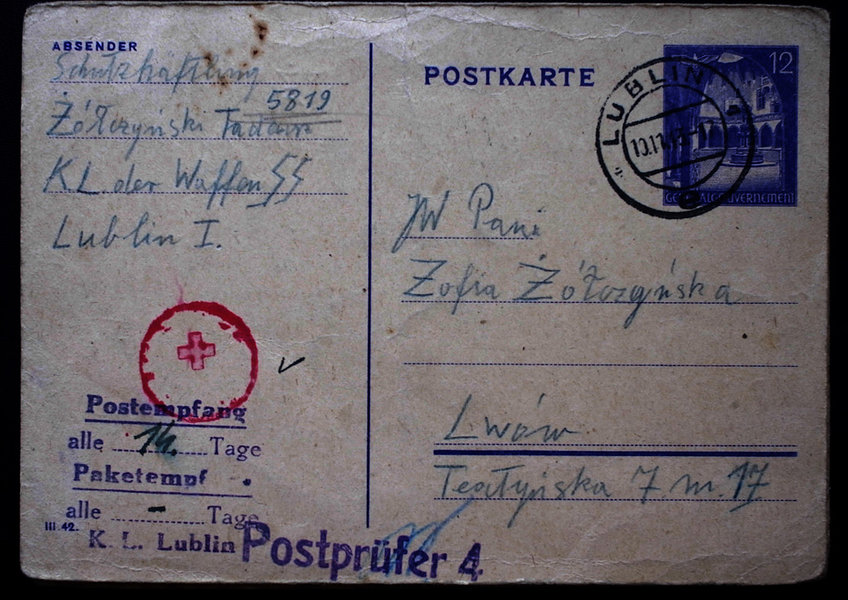 ABSENDER
Schutzhäftling
5819
Żółczyński Tadeusz
K L. der Waffen SS
Lublin I.
Postempfang
alle 14. Tage
Paketempf
alle - Tage
III. 42.
K. L. Lublin
Postprüfer 4.
POSTKARTE
12
LUBLIN 1
GENERALGOUVERNEMENT
JW Pani
Zofia Żółczyńska
Lwów
7 m. 17